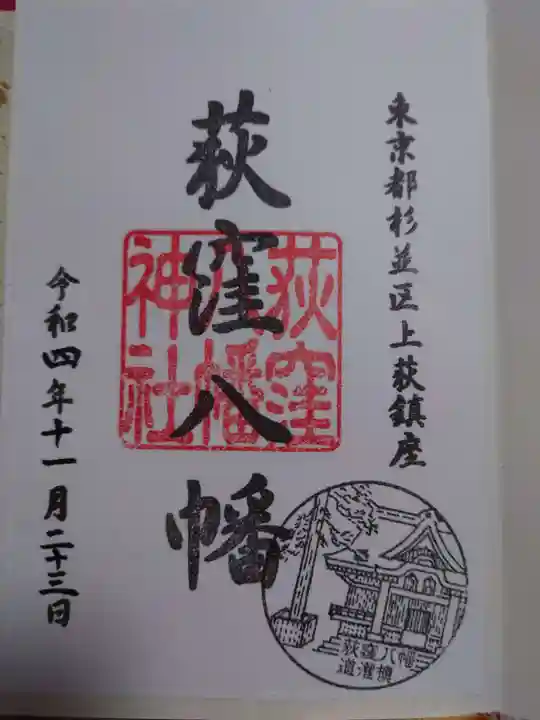 東京都杉並区上荻鎮座
荻窪八幡
荻窪
八幡
神社
令和四年十一月二十三日
荻窪八幡
道灌槙